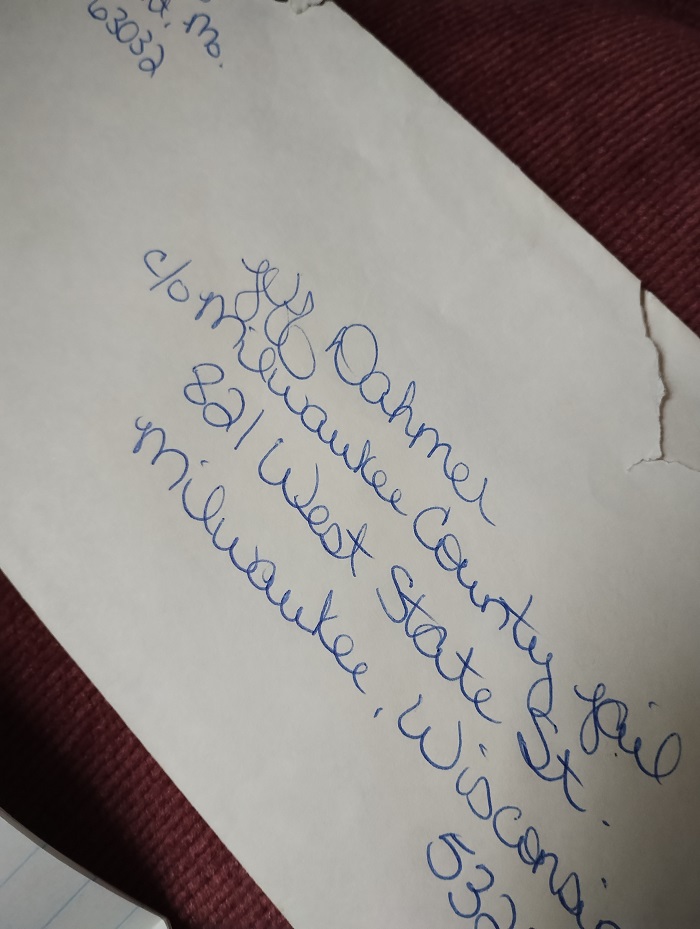 Mo.
63032
Jeff Dahmer
c/o Milwaukee County Jail
821 West State St.
Milwaukee, Wisconsi
532